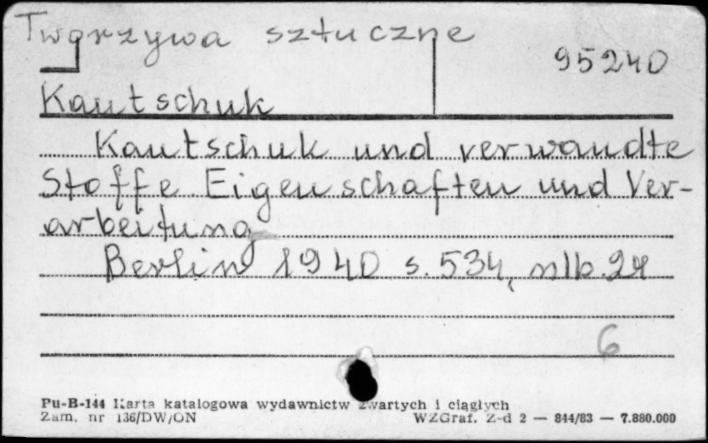 Tworzywa sztuczne
95240
Kautschuk
Kautschuk und verwandte
Stoffe Eigenschaften und Ver-
arbeitung
Berlin 1940 s. 534, nlb. 24
6
Pu-B-144 Karta katalogowa wydawnictw zwartych i ciągłych
Zam. nr 136/DW/ON WZGraf. Z-d 2 — 844/83 — 7.880.000